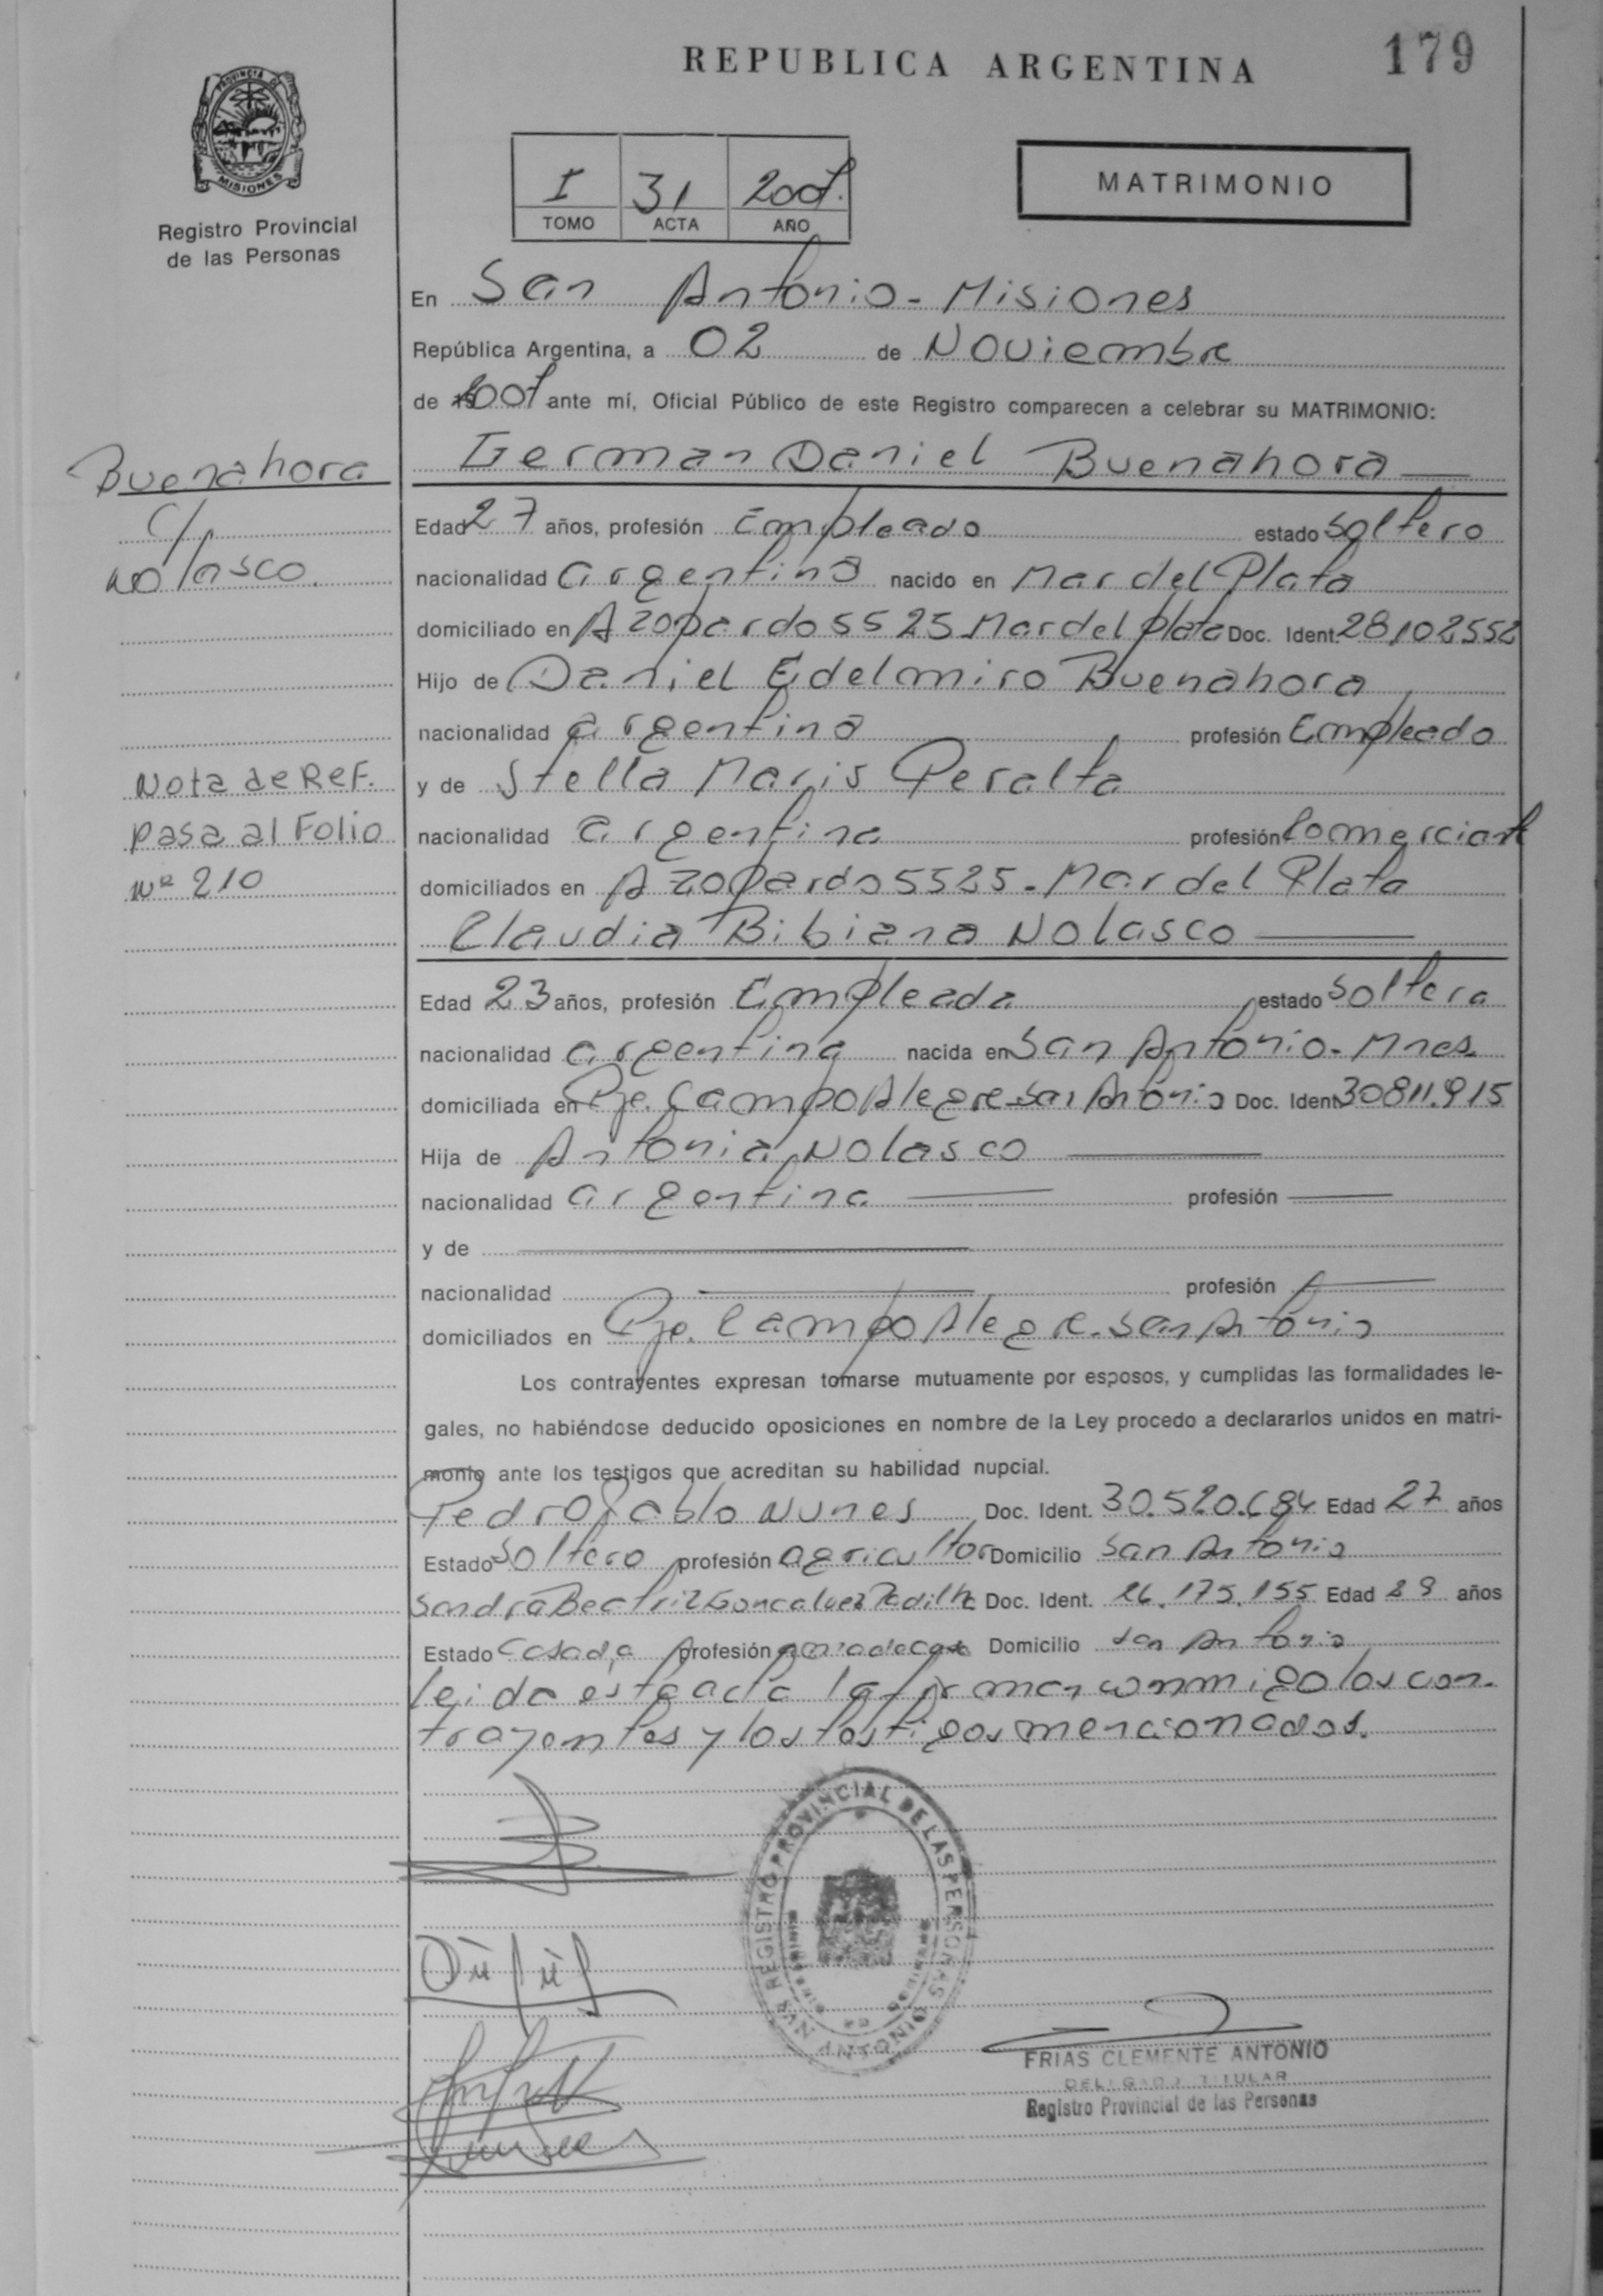 REPUBLICA ARGENTINA
179
PROVINCIA DE MISIONES
Registro Provincial
de las Personas
I 31 2007.
TOMO ACTA AÑO
MATRIMONIO
En San Antonio - Misiones
República Argentina, a 02 de Noviembre
de 2007 ante mí, Oficial Público de este Registro comparecen a celebrar su MATRIMONIO:
Buenahora
c/
Nolasco.
German Daniel Buenahora
Edad 27 años, profesión Empleado estado soltero
nacionalidad argentina nacido en Mar del Plata
domiciliado en Azopardo 5525 Mar del Plata Doc. Ident. 28.102552
Hijo de Daniel Edelmiro Buenahora
nacionalidad argentina profesión Empleado
y de Stella Maris Peralta
nacionalidad argentina profesión Comerciante
domiciliados en Azopardo 5525 - Mar del Plata
Nota de Ref.
pasa al Folio
Nº 210
Claudia Bibiana Nolasco
Edad 23 años, profesión Empleada estado soltera
nacionalidad argentina nacida en San Antonio - Mnes.
domiciliada en Pje. Campo Alegre San Antonio Doc. Ident 30811.915
Hija de Antonia Nolasco
nacionalidad argentina profesión
y de
nacionalidad profesión
domiciliados en Pje. Campo Alegre - San Antonio
Los contrayentes expresan tomarse mutuamente por esposos, y cumplidas las formalidades le-
gales, no habiéndose deducido oposiciones en nombre de la Ley procedo a declararlos unidos en matri-
monio ante los testigos que acreditan su habilidad nupcial.
Pedro Pablo Nunes Doc. Ident. 30.520.684 Edad 27 años
Estado Soltero profesión agricultor Domicilio San Antonio
Sandra Beatriz Goncalvez Padilha Doc. Ident. 26.175.155 Edad 29 años
Estado Casada profesión ama de casa Domicilio San Antonio
leida esta acta la firman conmigo los con-
trayentes y los testigos mencionados.
REGISTRO PROVINCIAL DE LAS PERSONAS
SAN ANTONIO
FRIAS CLEMENTE ANTONIO
DELEGADO TITULAR
Registro Provincial de las Personas